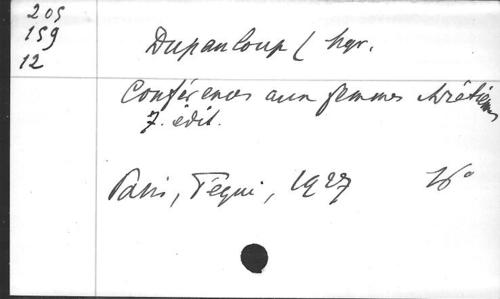 205
159
12
Dupanloup ( Mgr.
Conférences aux femmes chrétiennes
7. édit.
Paris, Téqui, 1927 16°